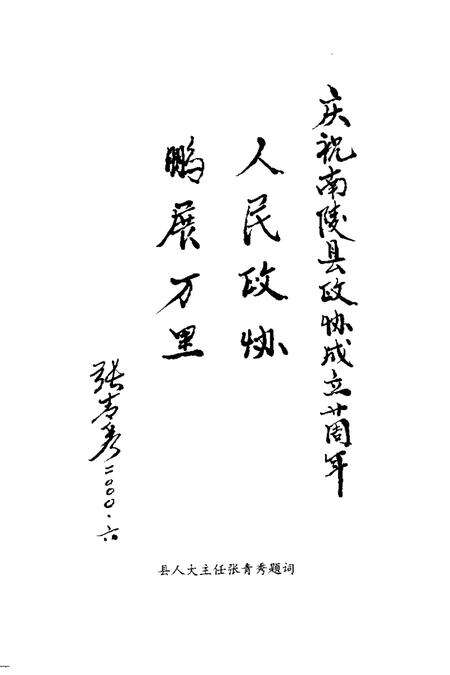 庆祝南陵县政协成立廿周年
人民政协
鹏展万里
张青秀二〇〇〇.六
县人大主任张青秀题词